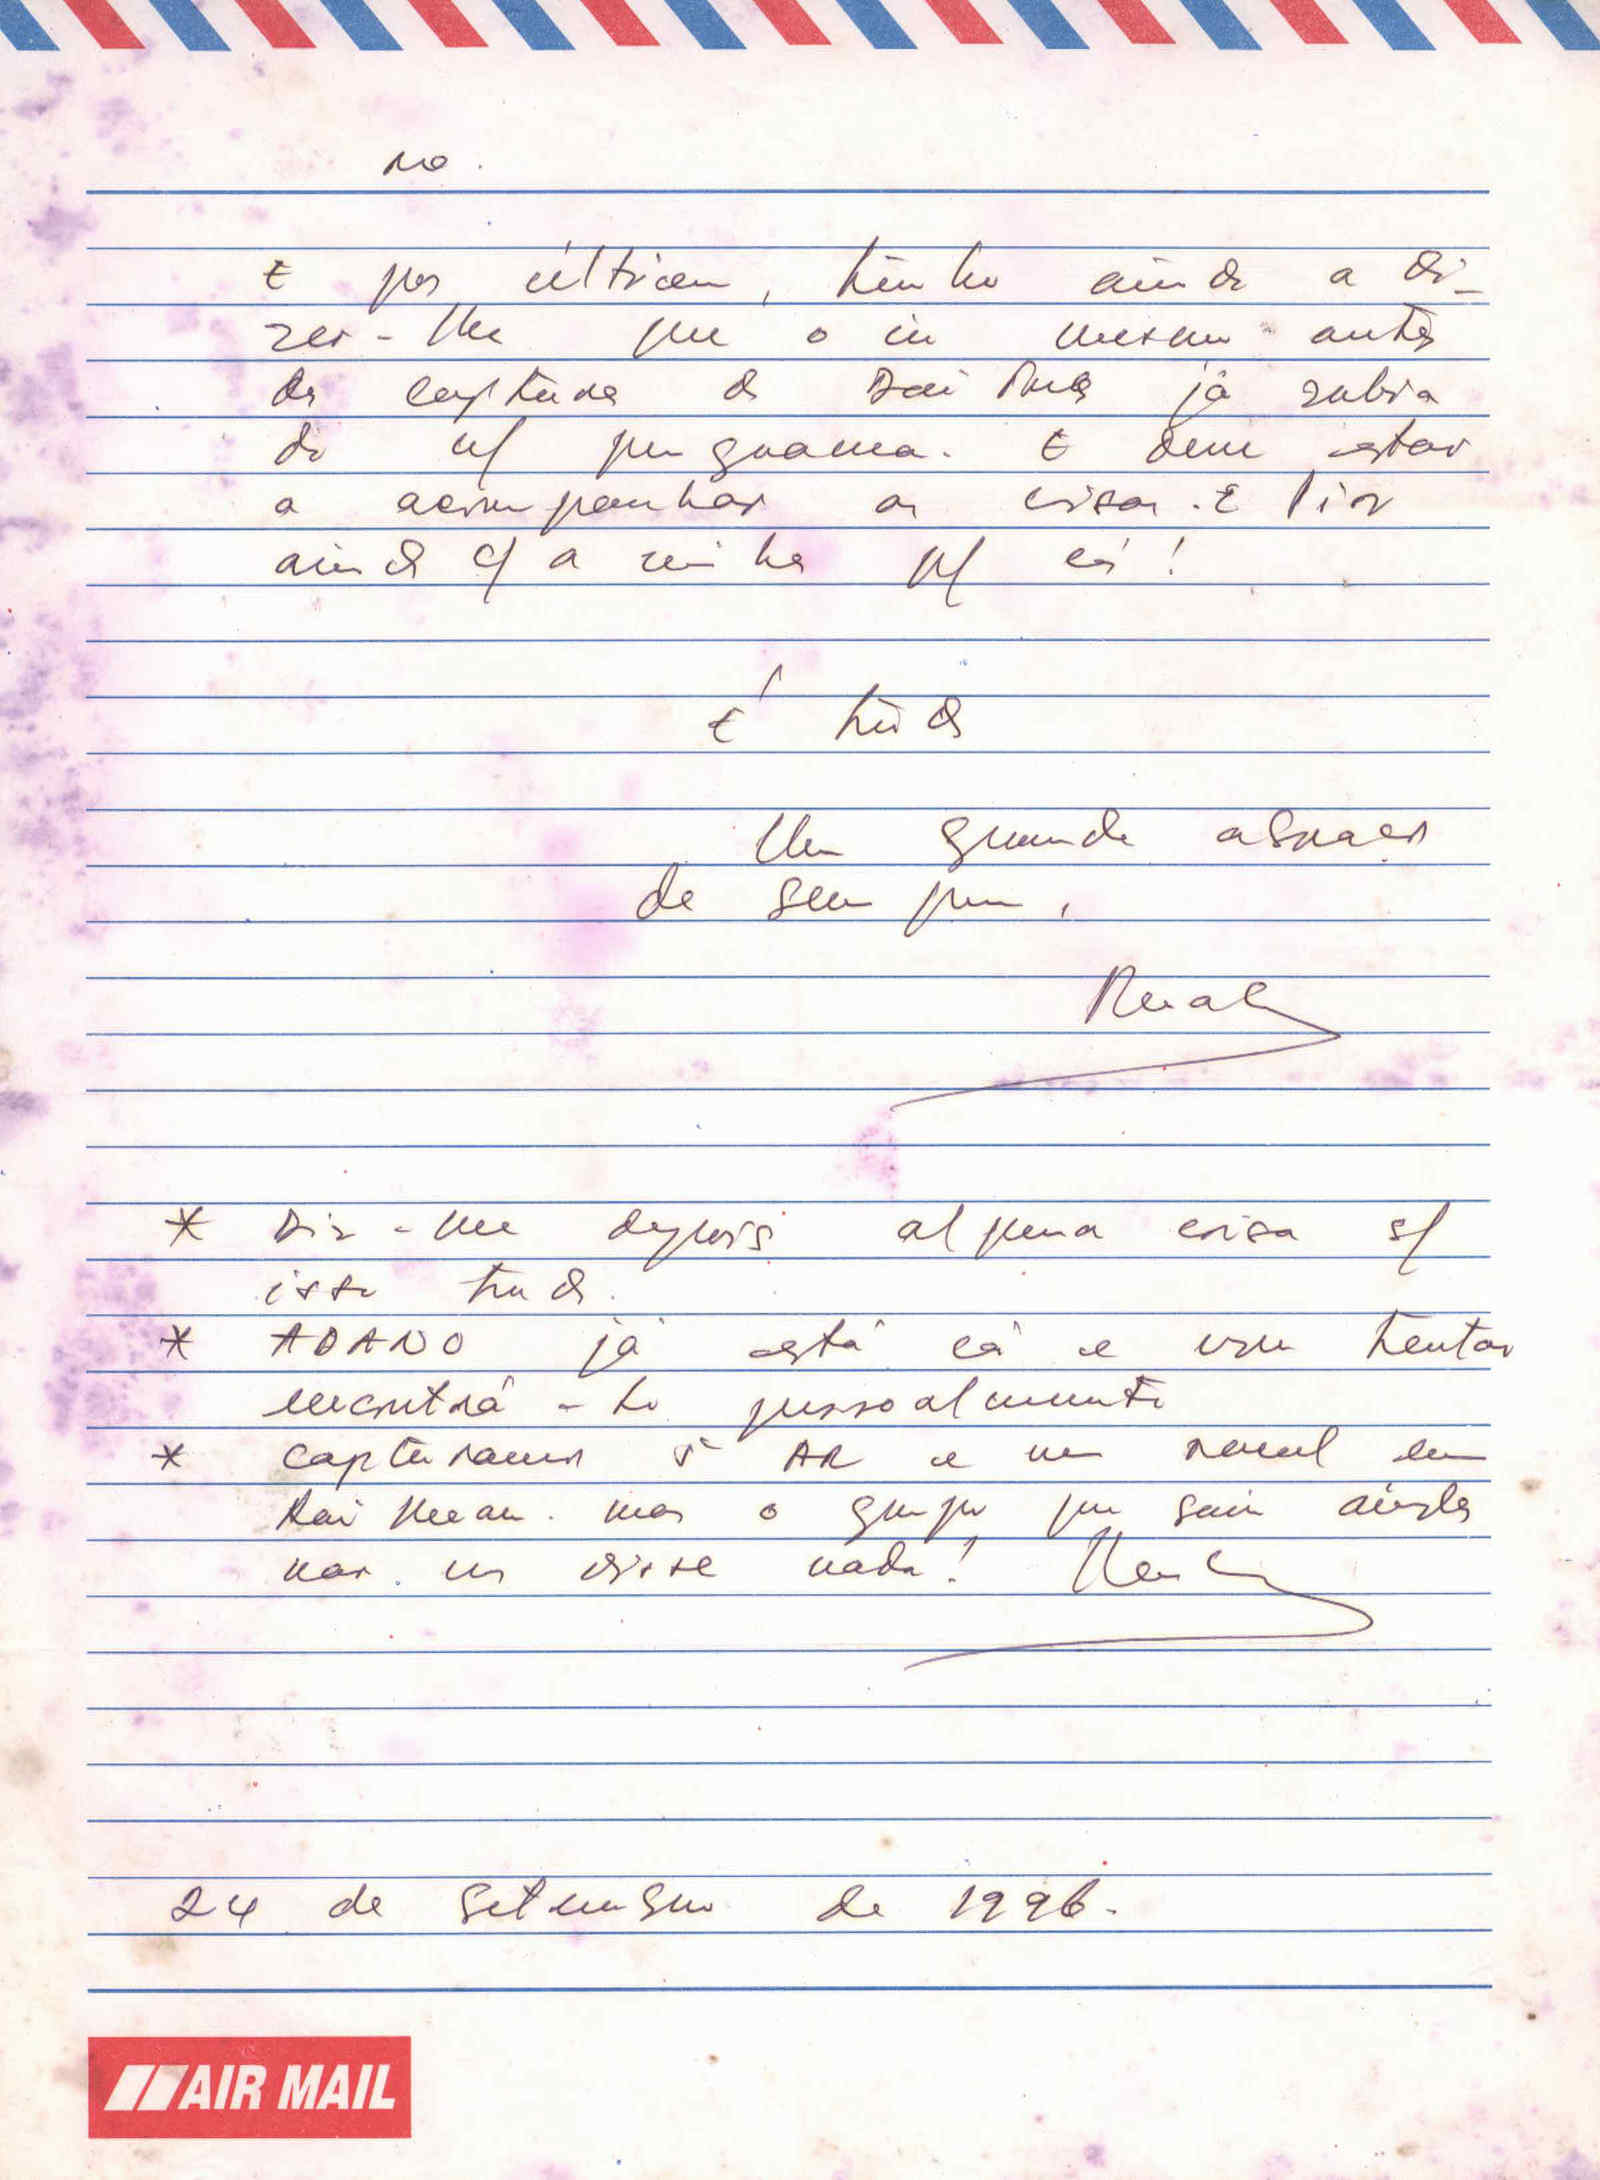 no.
E por último, tenho ainda a di-
zer-lhe que o in mesmo antes
da captura de já sabia
do n/ programa. E deve estar
a acompanhar as coisas. E Pior
ainda c/ a vinda p/ cá!
É tudo
Um grande abraço
de sempre,
* Diz-me depois alguma coisa s/
isso tudo.
* ADANO já está cá e vou tentar
encontrá-lo pessoalmente
* Capturamos 5 AR e um em
mas o grupo que saiu ainda
nao. me disse nada!
24 de Setembro de 1996.
AIR MAIL